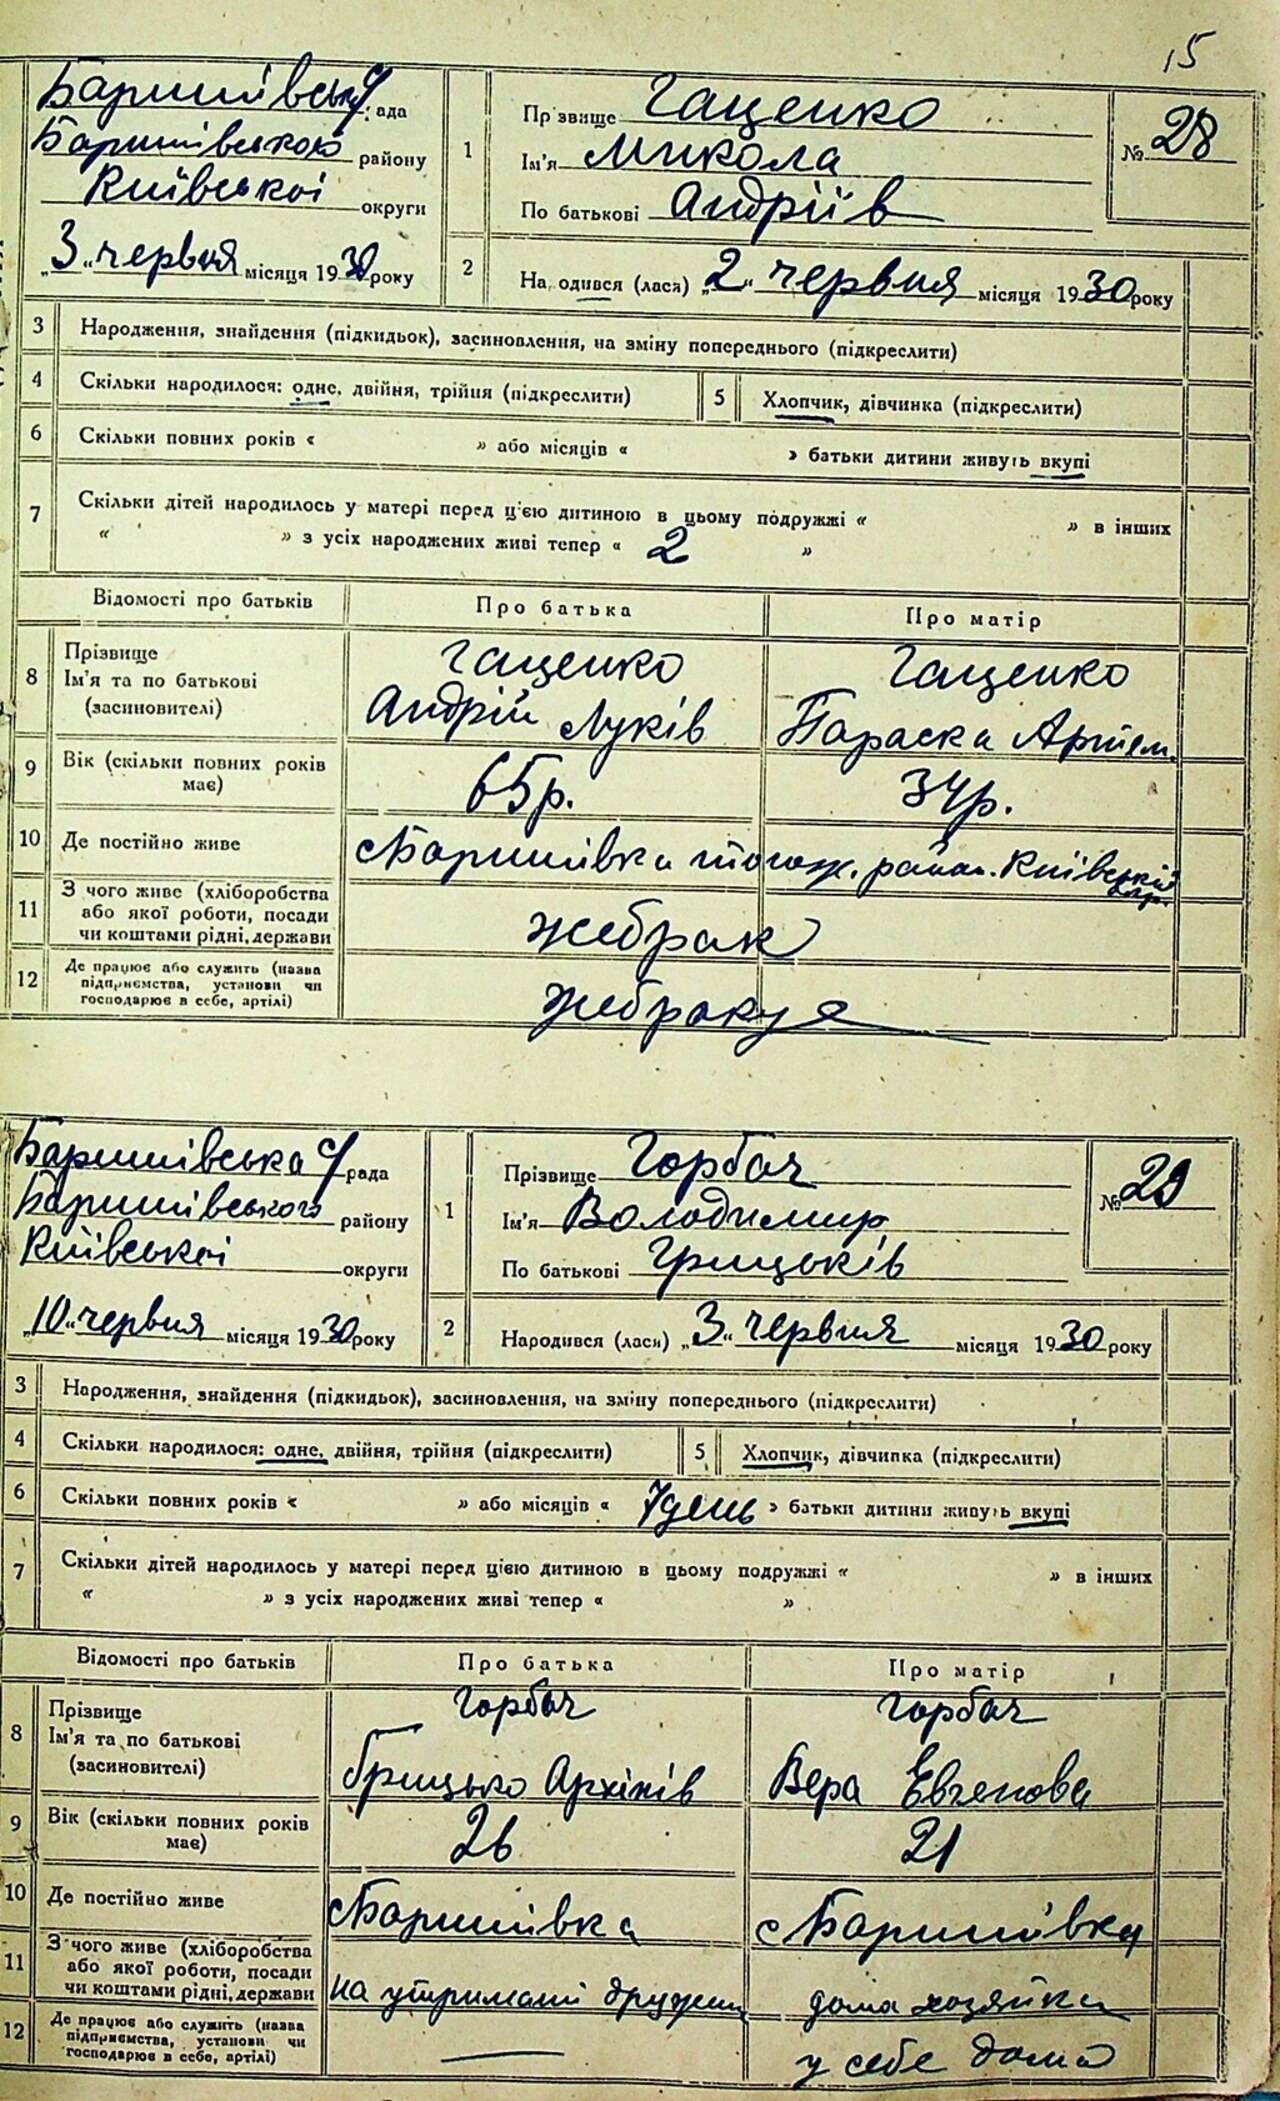 15
Баришівська рада
Баришівського району
Київської округи
„3“ червня місяця 1930 року
1 Прізвище Гаценко
Ім'я Микола
По батькові Андріїв
№ 28
2 На одився (лася) „2“ червня місяця 1930 року
3 Народження, знайдення (підкидьок), засиновлення, на зміну попереднього (підкреслити)
4 Скільки народилося: одне, двійня, трійня (підкреслити) 5 Хлопчик, дівчинка (підкреслити)
6 Скільки повних років « » або місяців « » батьки дитини живуть вкупі
7 Скільки дітей народилось у матері перед цією дитиною в цьому подружжі « » в інших
« » з усіх народжених живі тепер « 2 »
Відомості про батьків Про батька Про матір
8 Прізвище
Ім'я та по батькові
(засиновителі)
Гаценко
Андрій Луків
Гаценко
Параска Артем.
9 Вік (скільки повних років
має)
65 р.
34 р.
10 Де постійно живе с Баришівка тогож. район. Київській окр.
11 З чого живе (хліборобства
або якої роботи, посади
чи коштами рідні, держави
жебрак
12 Де працює або служить (назва
підприємства, установи чи
господарює в себе, артілі)
жебракує
Баришівська рада
Баришівського району
Київської округи
„10“ червня місяця 1930 року
1 Прізвище Горбач
Ім'я Володимир
По батькові Грицьків
№ 29
2 Народився (лася) „3“ червня місяця 1930 року
3 Народження, знайдення (підкидьок), засиновлення, на зміну попереднього (підкреслити)
4 Скільки народилося: одне, двійня, трійня (підкреслити) 5 Хлопчик, дівчинка (підкреслити)
6 Скільки повних років « » або місяців « 7 день » батьки дитини живуть вкупі
7 Скільки дітей народилось у матері перед цією дитиною в цьому подружжі « » в інших
« » з усіх народжених живі тепер « »
Відомості про батьків Про батька Про матір
8 Прізвище
Ім'я та по батькові
(засиновителі)
Горбач
Грицько Архипів
Горбач
Вера Евгенова
9 Вік (скільки повних років
має)
26
21
10 Де постійно живе с Баришівка с Баришівка
11 З чого живе (хліборобства
або якої роботи, посади
чи коштами рідні, держави
на утримані дружини
дома хозяйка
12 Де працює або служить (назва
підприємства, установи чи
господарює в себе, артілі)
—
у себе дома